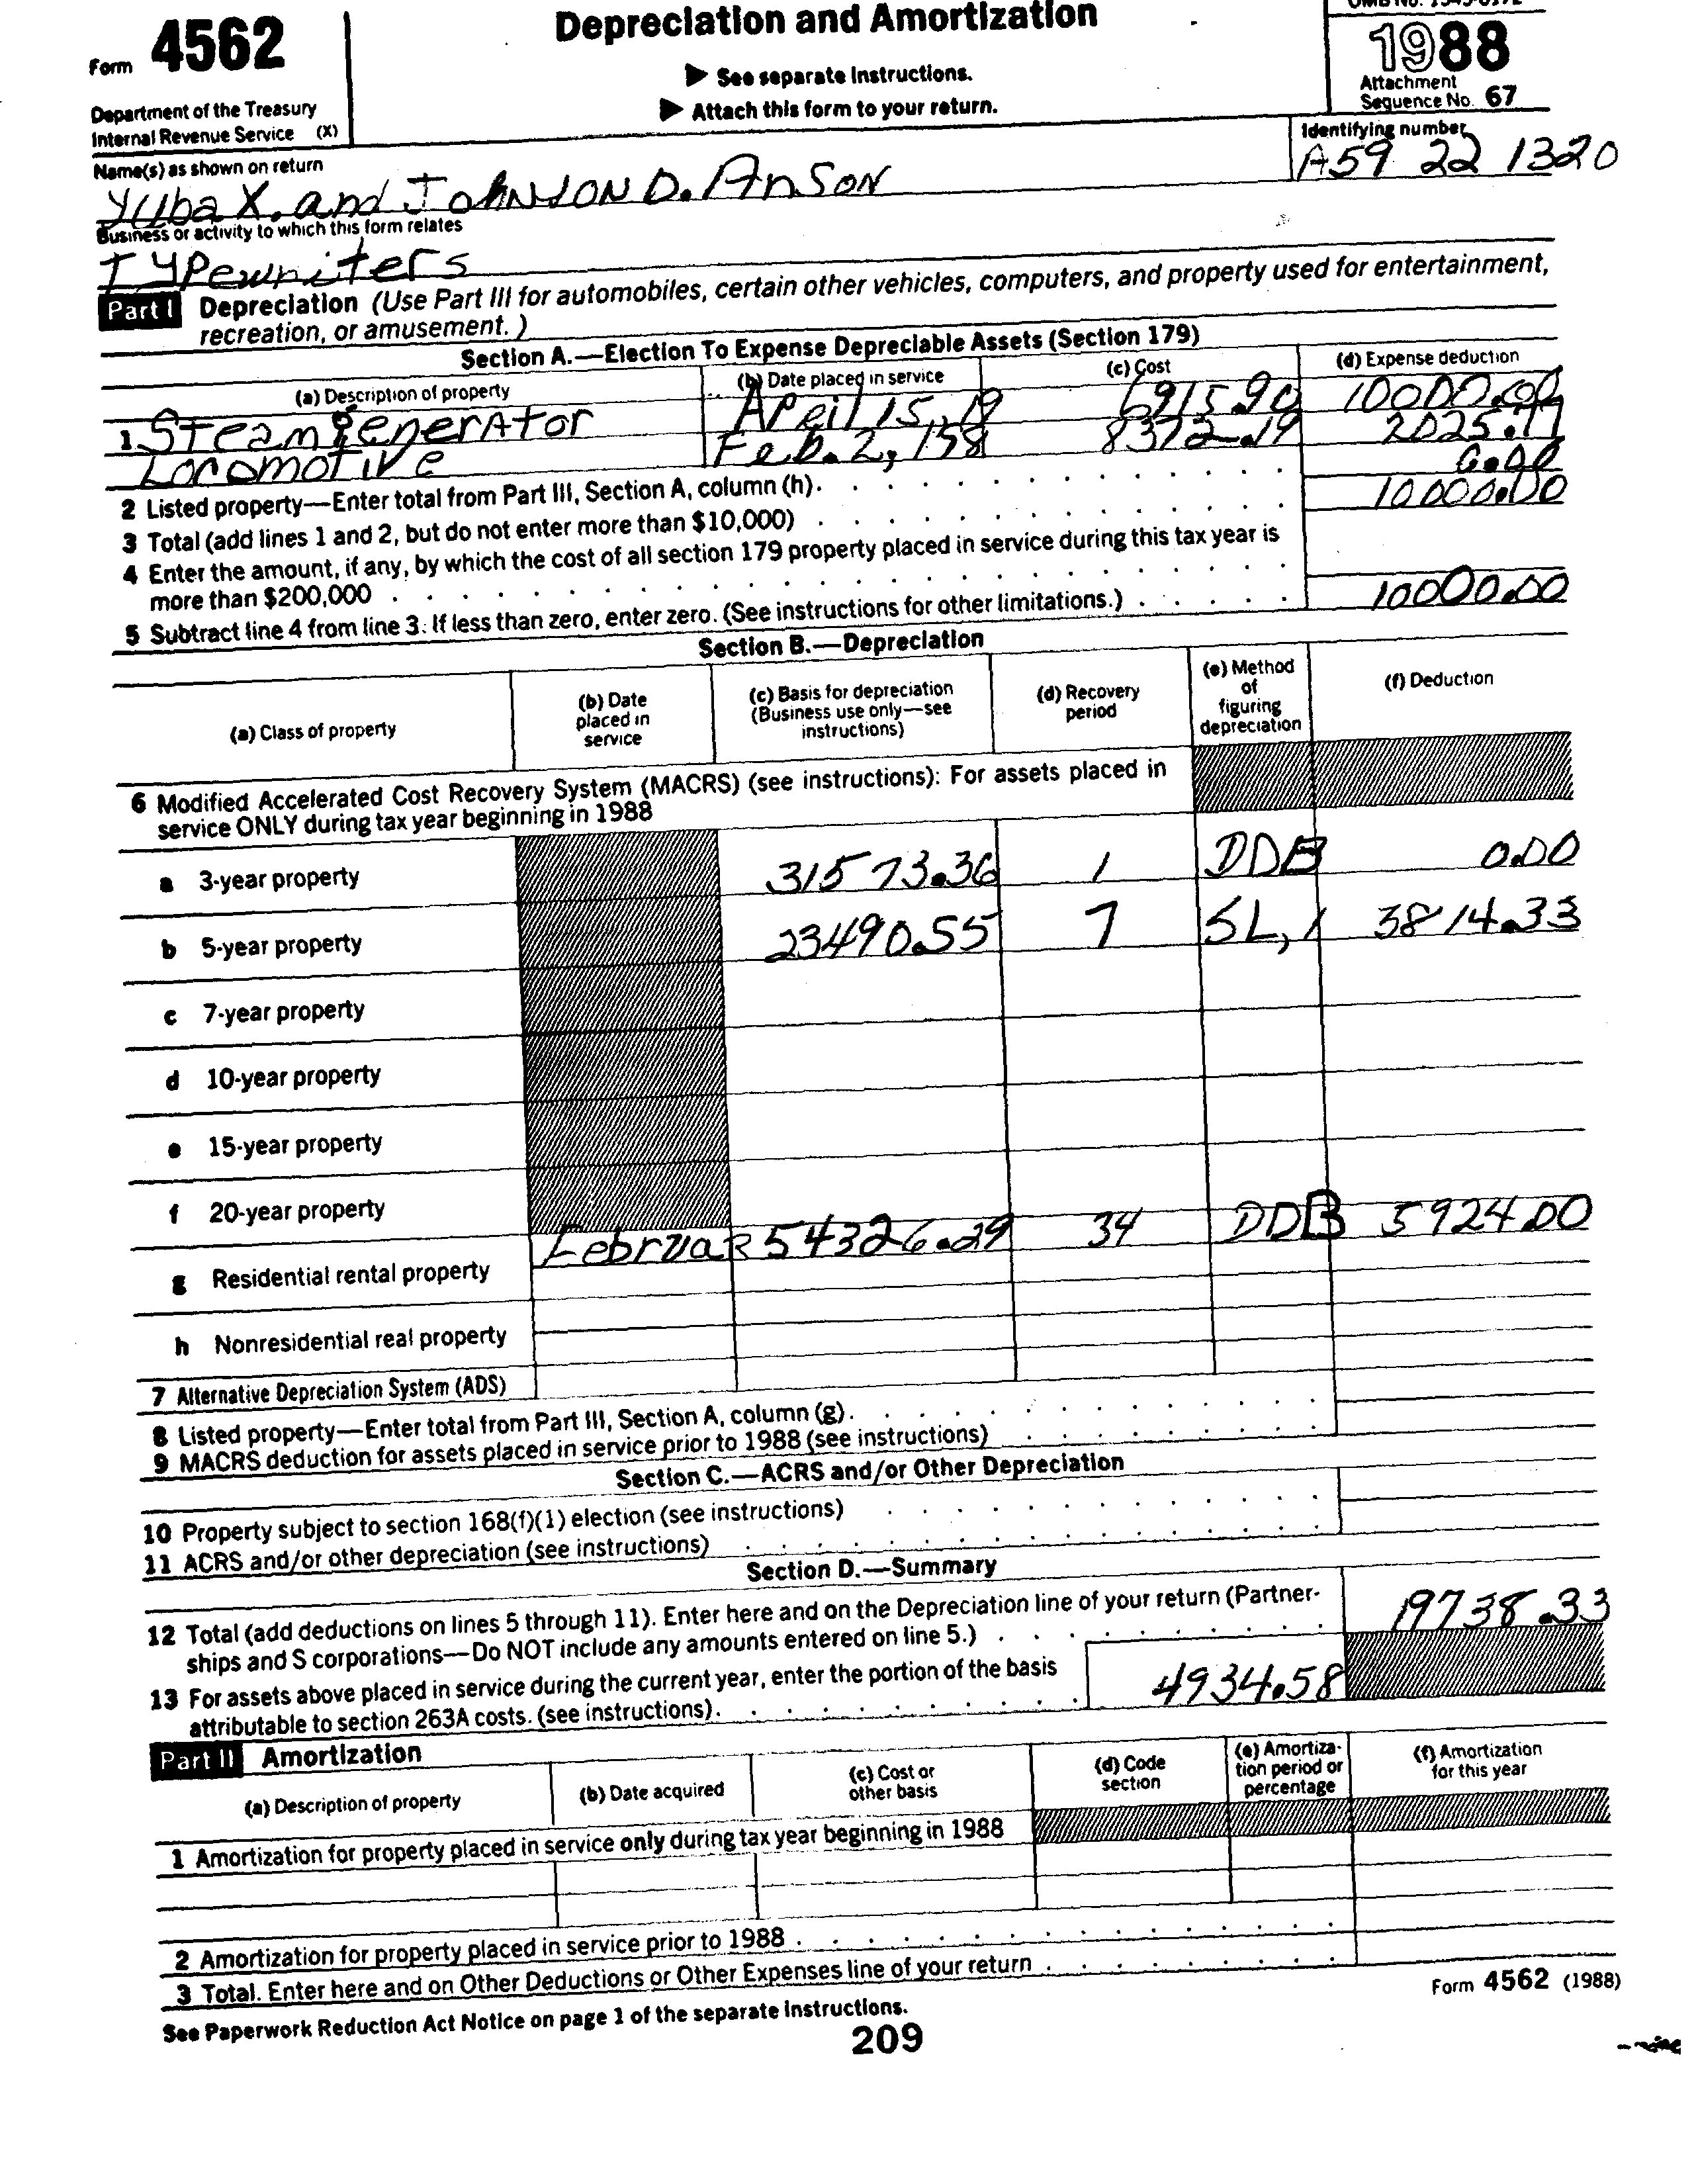 Form 4562
Department of the Treasury
Internal Revenue Service (X)
Depreciation and Amortization
▶ See separate instructions.
▶ Attach this form to your return.
1988
Attachment
Sequence No. 67
Name(s) as shown on return
Yuba X. and JOHNSON D. ANSON
Identifying number
A59 22 1320
Business or activity to which this form relates
Typewriters
Part I Depreciation (Use Part III for automobiles, certain other vehicles, computers, and property used for entertainment,
recreation, or amusement.)
Section A.—Election To Expense Depreciable Assets (Section 179)
(a) Description of property (b) Date placed in service (c) Cost (d) Expense deduction
1 Steam generator April 15, 19 6915.90 10000.00
Locomotive Feb. 2, 198 8372.19 2025.77
2 Listed property—Enter total from Part III, Section A, column (h). 0.00
3 Total (add lines 1 and 2, but do not enter more than $10,000) 10000.00
4 Enter the amount, if any, by which the cost of all section 179 property placed in service during this tax year is
more than $200,000
5 Subtract line 4 from line 3. If less than zero, enter zero. (See instructions for other limitations.) 10000.00
Section B.—Depreciation
(a) Class of property (b) Date placed in service (c) Basis for depreciation (Business use only—see instructions) (d) Recovery period (e) Method of figuring depreciation (f) Deduction
6 Modified Accelerated Cost Recovery System (MACRS) (see instructions): For assets placed in
service ONLY during tax year beginning in 1988
a 3-year property 31573.36 1 DDB 0.00
b 5-year property 23490.55 7 SL, 1 3814.33
c 7-year property
d 10-year property
e 15-year property
f 20-year property
g Residential rental property Februar 54326.29 34 DDB 5924.00
h Nonresidential real property
7 Alternative Depreciation System (ADS)
8 Listed property—Enter total from Part III, Section A, column (g).
9 MACRS deduction for assets placed in service prior to 1988 (see instructions)
Section C.—ACRS and/or Other Depreciation
10 Property subject to section 168(f)(1) election (see instructions)
11 ACRS and/or other depreciation (see instructions)
Section D.—Summary
12 Total (add deductions on lines 5 through 11). Enter here and on the Depreciation line of your return (Partner-
ships and S corporations—Do NOT include any amounts entered on line 5.) 19738.33
13 For assets above placed in service during the current year, enter the portion of the basis
attributable to section 263A costs. (see instructions). 4934.58
Part II Amortization
(a) Description of property (b) Date acquired (c) Cost or other basis (d) Code section (e) Amortiza-tion period or percentage (f) Amortization for this year
1 Amortization for property placed in service only during tax year beginning in 1988
2 Amortization for property placed in service prior to 1988
3 Total. Enter here and on Other Deductions or Other Expenses line of your return
See Paperwork Reduction Act Notice on page 1 of the separate instructions.
Form 4562 (1988)
209